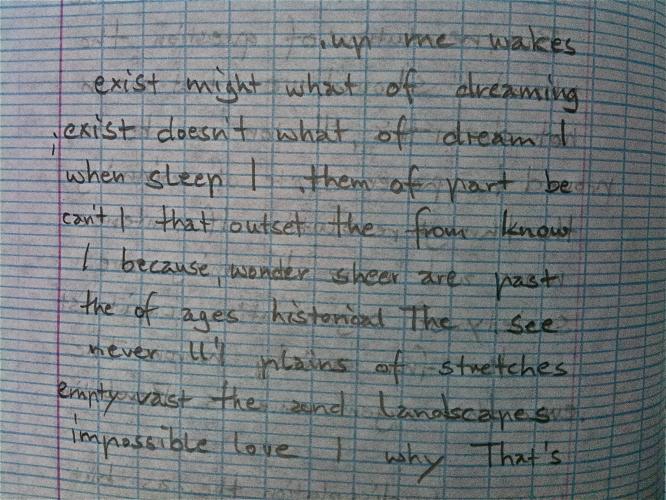 .up me wakes
exist might what of dreaming
;exist doesn't what of dream I
when sleep I .them of part be
can't I that outset the from know
I because, wonder sheer are past
the of ages historical The see
never I'll plains of stretches
empty vast the and landscapes
impossible love I why That's